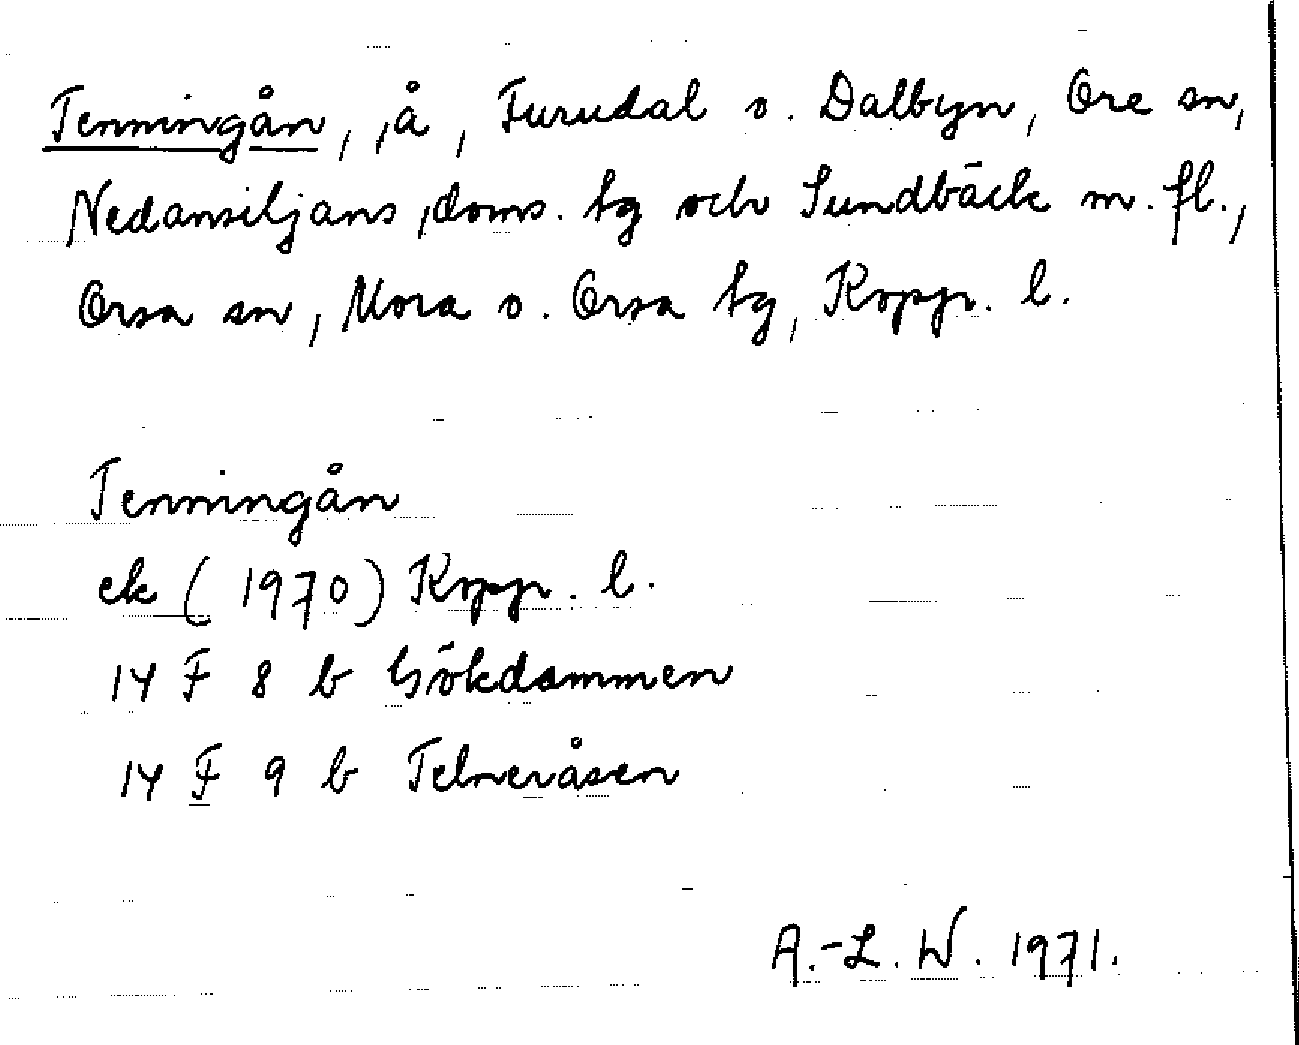 Tenningån, å, Furudal o. Dalbyn, Ore sn,
Nedansiljans doms. tg och Sundbäck m. fl.,
Orsa sn, Mora o. Orsa tg, Kopp. l.
Tenningån
ek (1970) Kopp. l.
14 F 8 b Gökdammen
14 F 9 b Telneråsen
A.-L. W. 1971.